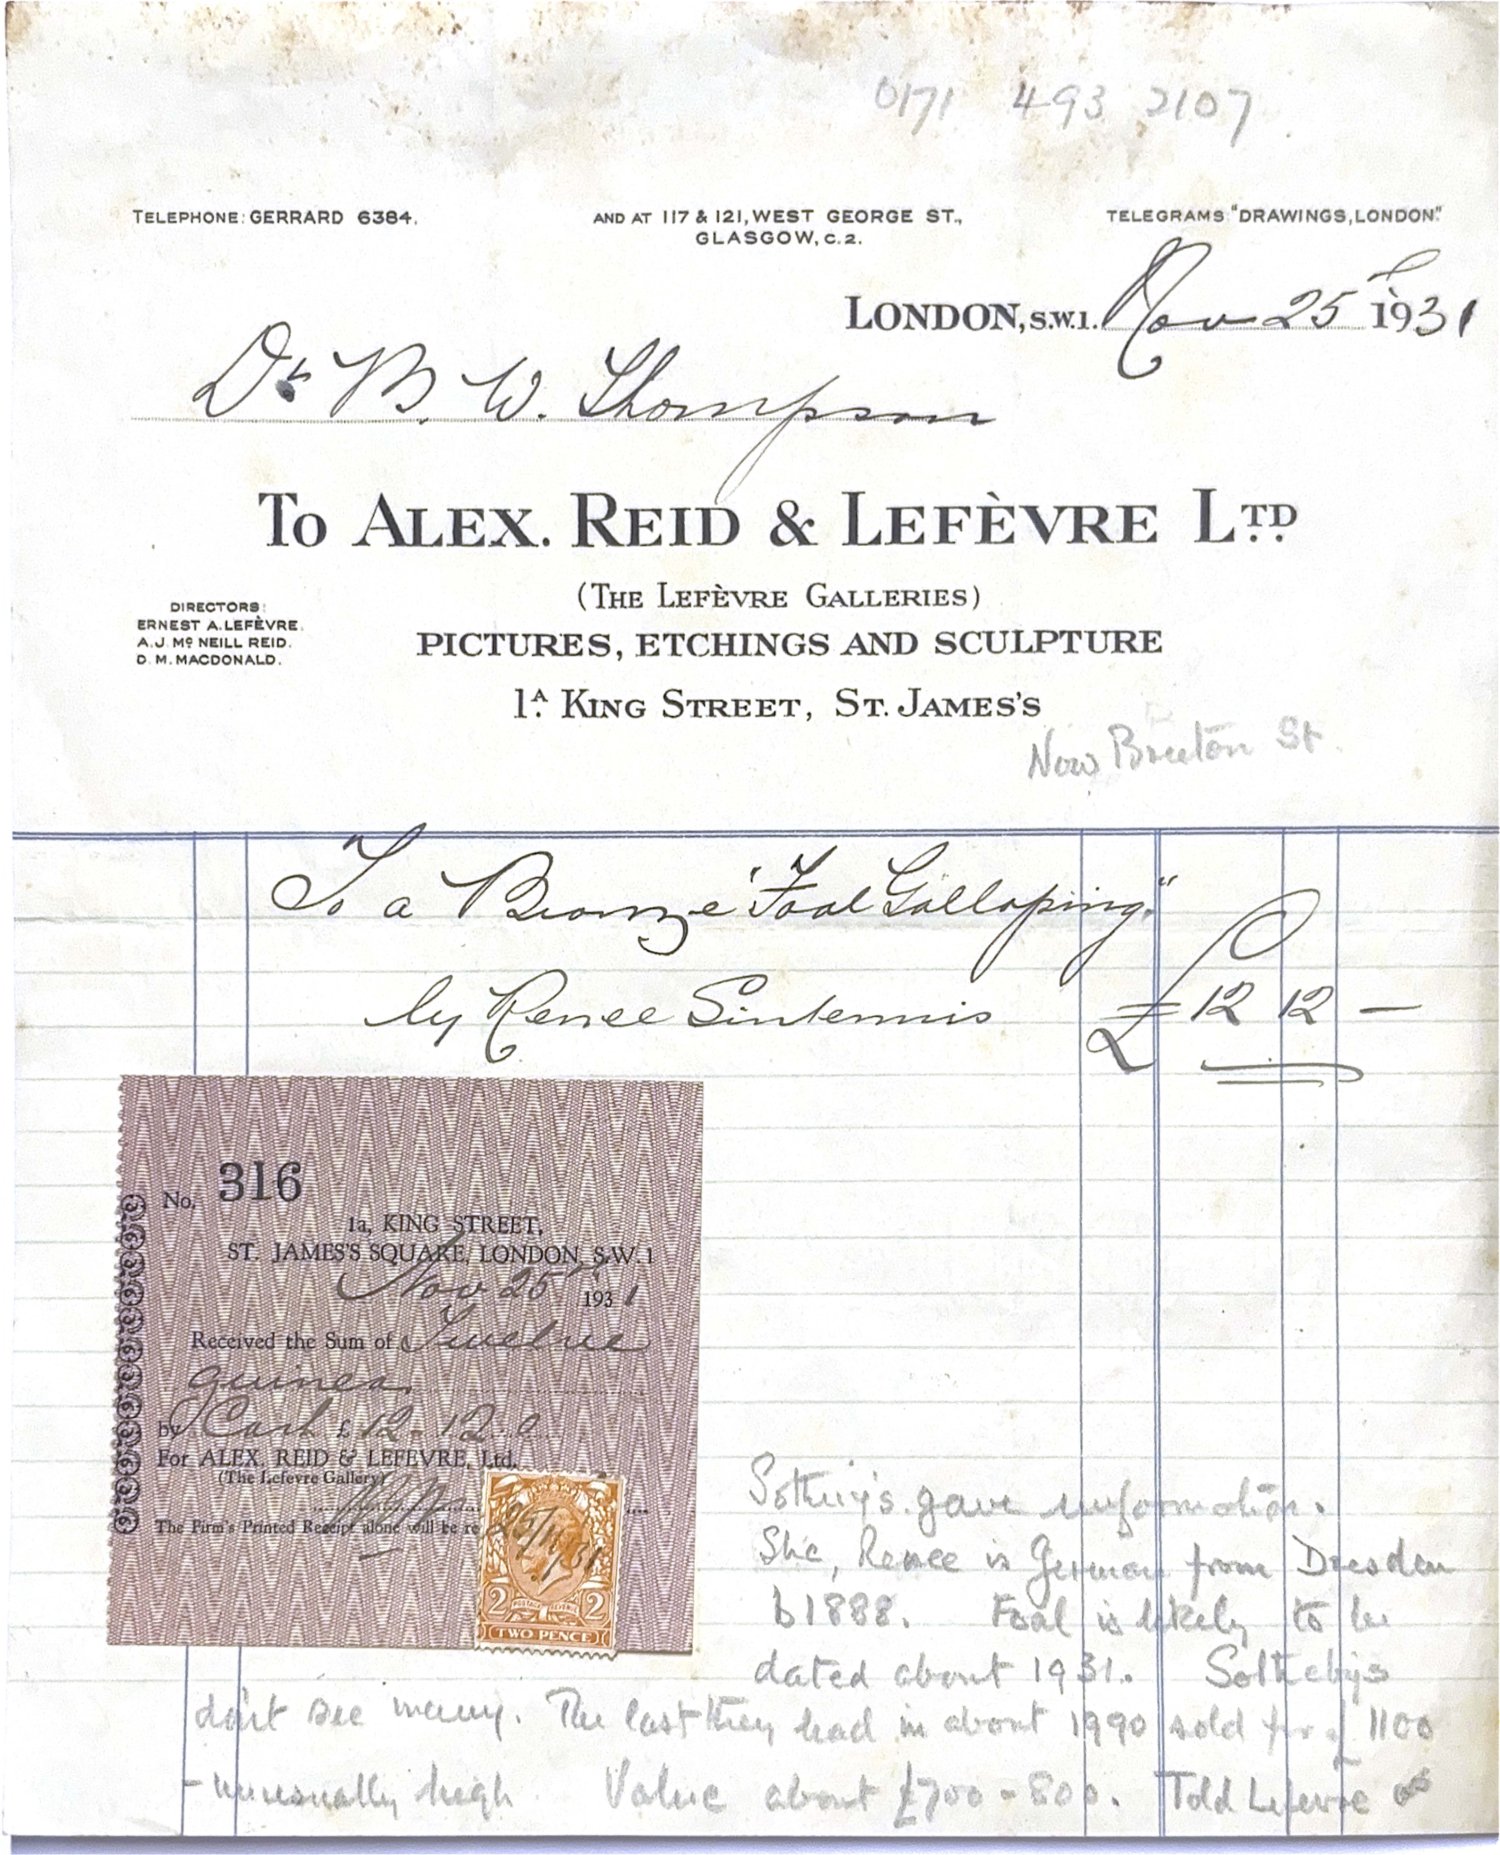 0171 493 2107
TELEPHONE: GERRARD 6384.
AND AT 117 & 121, WEST GEORGE ST.,
GLASGOW, C.2.
TELEGRAMS "DRAWINGS, LONDON."
LONDON, S.W.1. Nov 25th 1931
Dr B. W. Thompson
To ALEX. REID & LEFÈVRE LTD.
(THE LEFÈVRE GALLERIES)
DIRECTORS:
ERNEST A. LEFÈVRE.
A.J. Mc NEILL REID.
D.M. MACDONALD.
PICTURES, ETCHINGS AND SCULPTURE
1A. KING STREET, ST. JAMES'S
Now Bruton St.
To a Bronze "Foal Galloping"
by Renee Sintennis £12 12 —
No. 316
1a, KING STREET,
ST. JAMES'S SQUARE, LONDON, S.W.1
Nov 25th 1931
Received the Sum of Twelve
guineas
by Cash £12-12.0
For ALEX. REID & LEFEVRE, Ltd.
(The Lefevre Gallery)
The Firm's Printed Receipt alone will be re
25/11/31
2 POSTAGE REVENUE 2
TWO PENCE
Sotheby's gave information.
She, Renee is German from Dresden
b 1888. Foal is likely to be
dated about 1931. Sotheby's
don't see many. The last they had in about 1990 sold for £1100
- unusually high. Value about £700-800. Told Lefevre